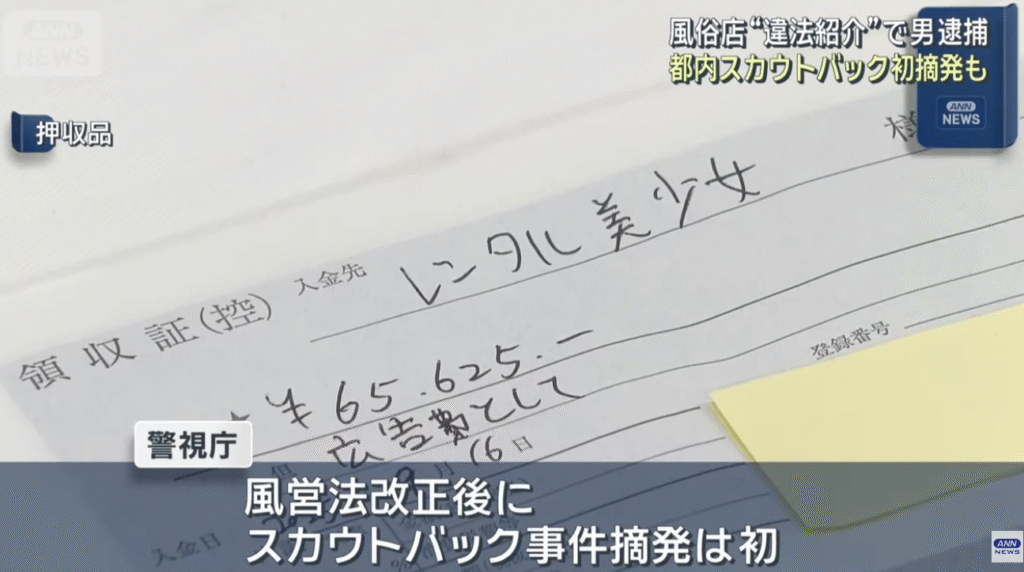 ANN
NEWS
風俗店“違法紹介”で男逮捕
都内スカウトバック初摘発も
ANN
NEWS
押収品
様
入金先
レンタル美少女
領収証(控)
¥65.625.-
登録番号
但
広告費として
月16日
入金日
警視庁
風営法改正後に
スカウトバック事件摘発は初
ANN
NEWS